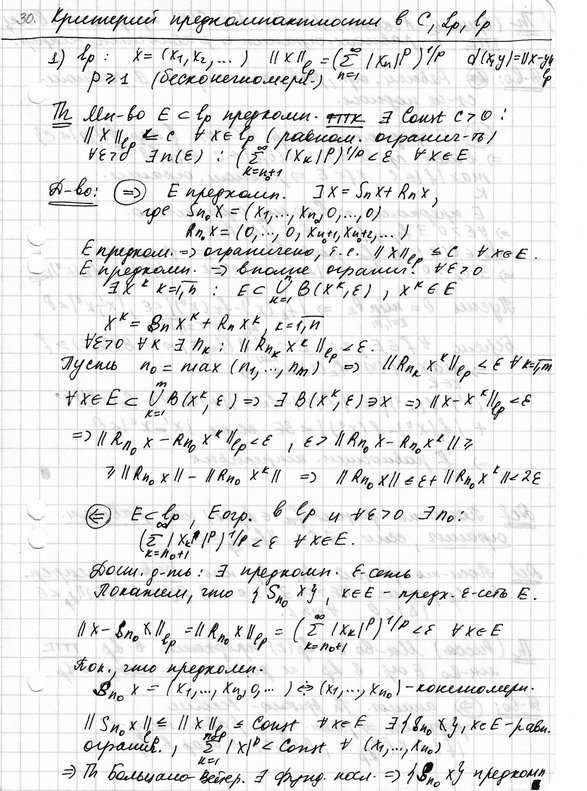 30. Критерий предкомпактности в C, Lp, lp
1) lp : x = (x₁, x₂, ...) ‖x‖lp = (∑_{n=1}^∞ |xₙ|^p)^{1/p} d(x,y) = ‖x-y‖lp
p ≥ 1 (бесконечномерн.)
Th Мн-во E ⊂ lp предкомп. ттк ∃ Const C>0 :
‖x‖lp ≤ C ∀x∈lp (равном. огранич-ть)
∀ε>0 ∃n(ε) : (∑_{k=n₀+1}^∞ |xₖ|^p)^{1/p} < ε ∀x∈E
Д-во: ⇒ E предкомп. ∃ x = Sₙx + Rₙx,
где Sₙ₀x = (x₁, ..., xₙ₀, 0, ..., 0)
Rₙ₀x = (0, ..., 0, xₙ₀₊₁, xₙ₀₊₂, ...)
E предком. ⇒ ограничено, т.е. ‖x‖lp ≤ C ∀x∈E.
E предкомп. ⇒ вполне огранич. ∀ε>0
∃ x^k k=1,n : E ⊂ ⋃_{k=1}^n B(x^k, ε), x^k ∈ E
x^k = Sₙx^k + Rₙx^k, k=1,n
∀ε>0 ∀k ∃nₖ : ‖R_{nₖ} x^k‖lp < ε.
Пусть n₀ = max (n₁, ..., nₘ) ⇒ ‖R_{nₖ} x^k‖lp < ε ∀k=1,m
∀x∈E ⊂ ⋃_{k=1}^m B(x^k, ε) ⇒ ∃ B(x^k, ε) ∋ x ⇒ ‖x - x^k‖lp < ε
⇒ ‖Rₙ₀x - Rₙ₀x^k‖lp < ε , ε > ‖Rₙ₀x - Rₙ₀x^k‖ ≥
≥ ‖Rₙ₀x‖ - ‖Rₙ₀x^k‖ ⇒ ‖Rₙ₀x‖ ≤ ε + ‖Rₙ₀x^k‖ < 2ε
⇐ E ⊂ lp, E огр. в lp и ∀ε>0 ∃n₀ :
(∑_{k=n₀+1}^∞ |xₖ|^p)^{1/p} < ε ∀x∈E.
Дост. д-ть : ∃ предкомп. ε-сеть
Покажем, что {Sₙ₀x}, x∈E - предк. ε-сеть E.
‖x - Sₙ₀x‖lp = ‖Rₙ₀x‖lp = (∑_{k=n₀+1}^∞ |xₖ|^p)^{1/p} < ε ∀x∈E
Пок., что предкомп.
Sₙ₀x = (x₁, ..., xₙ₀, 0, ...) ⇔ (x₁, ..., xₙ₀) - конечномерн.
‖Sₙ₀x‖lp ≤ ‖x‖lp ≤ Const ∀x∈E ∃ {Sₙ₀x}, x∈E - равн.
огранич., ∑_{k=1}^{n₀} |x|^p < Const ∀ (x₁, ..., xₙ₀)
⇒ Th Больцано-Вейер. ∃ фунд. посл. ⇒ {Sₙ₀x} предкомп